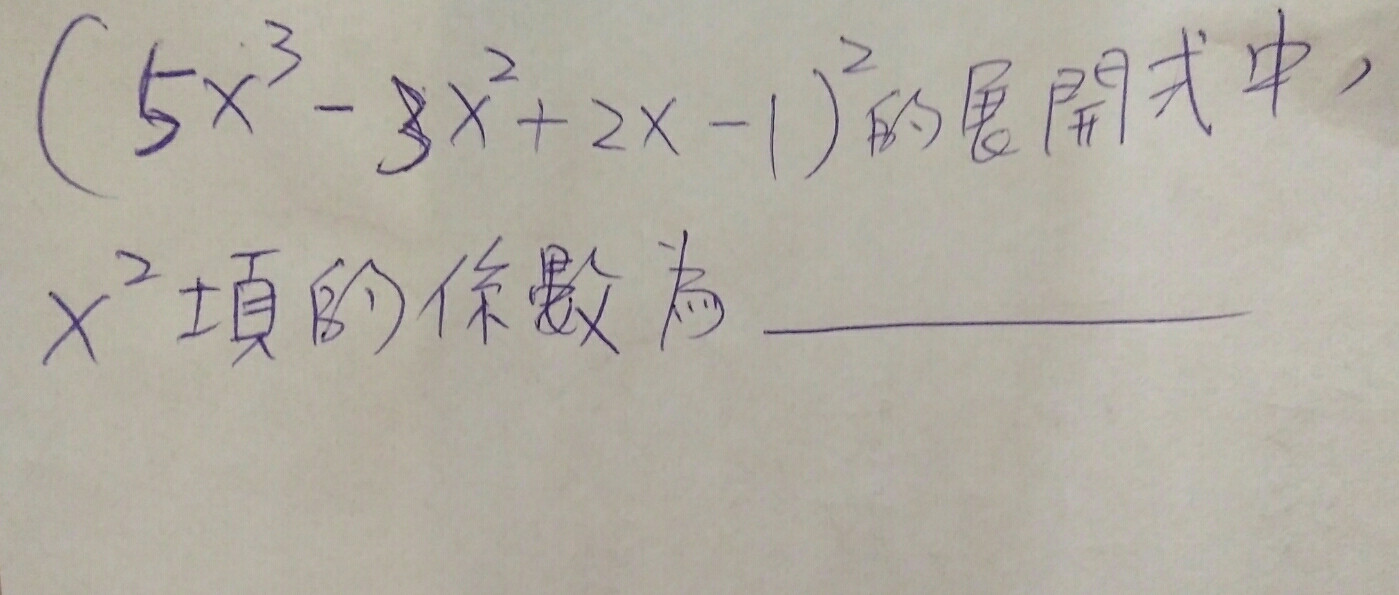 (5x³-3x²+2x-1)²的展開式中，
x²項的係數為______